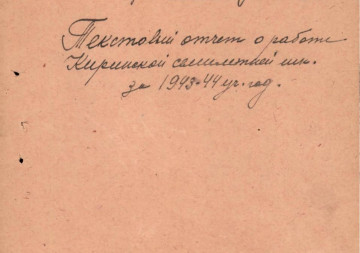 Текстовый отчет о работе
Киринской семилетней шк.
за 1943-44 уч. год.